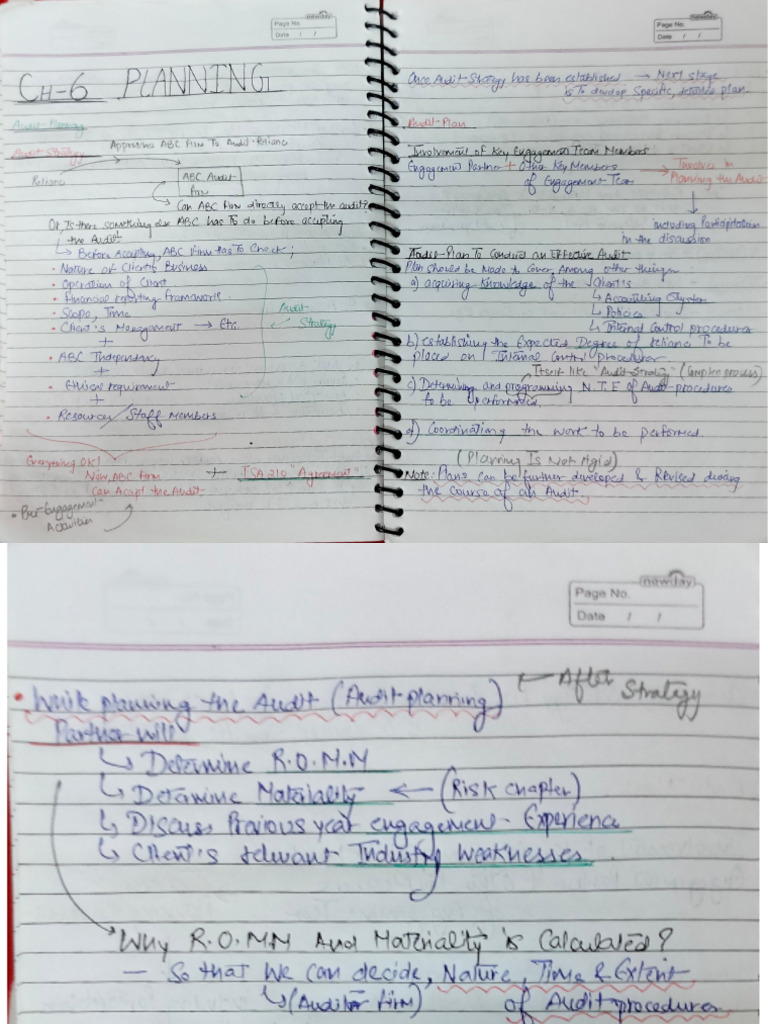 newday
Page No.
Date / /
CH-6 PLANNING
Audit-Planning
Audit Strategy
Approaches ABC Firm To Audit-Reliance
Reliance
ABC Audit
Firm
Can ABC Firm directly accept the audit?
Or, Is there something else ABC has to do before accepting
the Audit
Before Accepting, ABC Firm has To Check;
• Nature of Client's Business
• Operation of Client
• Financial reporting Framework.
• Scope, Time
• Client's Management → Etc.
+
• ABC Independency
+
• Ethical requirement
+
• Resources/Staff Members
Audit
Strategy
Everything OK!
Now, ABC Firm
Can Accept the Audit
+ ISA 210 "Agreement"
• Pre-Engagement
Activities
newday
Page No.
Date / /
Once Audit Strategy has been established → Next stage
is To develop Specific, detailed plan.
Audit-Plan
Involvement of Key Engagement Team Members
Engagement Partner + Other Key Members
of Engagement Team
→ Involves in
Planning the Audit
including Participation
in the discussion
Audit-Plan To Conduct an Effective Audit
Plan should be Made to cover, Among other things
a) acquiring Knowledge of the Client's
Accounting System
Policies
Internal Control procedures
b) establishing the Expected Degree of reliance To be
placed on Internal Control procedures.
Itself like "Audit Strategy" (Complex process)
c) Determining and programming N.T.E of Audit-procedures
to be performed.
d) Coordinating the work to be performed.
(Planning Is Not Rigid)
Note: Plans can be further developed & Revised during
the course of an Audit.
newday
Page No.
Date / /
• While planning the Audit (Audit-planning) ← After Strategy
Partner will
Determine R.O.M.M
Determine Materiality ← (Risk chapter)
Discuss Previous year engagement-Experience
Client's relevant Industry weaknesses.
Why R.O.M.M And Materiality is Calculated?
— So that We can decide, Nature, Time & Extent
(Auditor firm) of Audit procedures